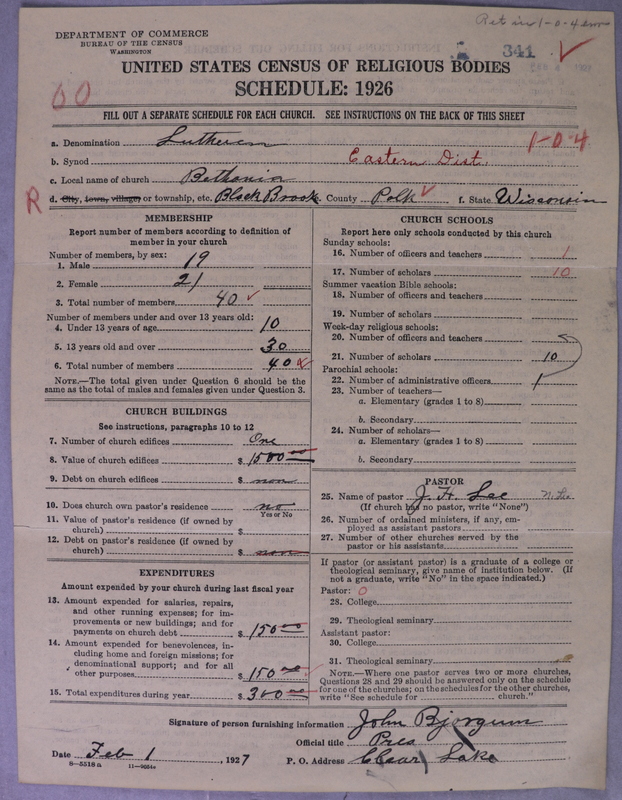 Ret in 1-0-4
DEPARTMENT OF COMMERCE
BUREAU OF THE CENSUS
WASHINGTON
341
UNITED STATES CENSUS OF RELIGIOUS BODIES
SCHEDULE: 1926
60
FILL OUT A SEPARATE SCHEDULE FOR EACH CHURCH. SEE INSTRUCTIONS ON THE BACK OF THIS SHEET
a. Denomination Lutheran 1-0-4
b. Synod Eastern Dist.
c. Local name of church Bethania
R d. City, town, village, or township, etc. Black Brook County Polk f. State Wisconsin
MEMBERSHIP
Report number of members according to definition of
member in your church
Number of members, by sex:
1. Male 19
2. Female 21
3. Total number of members 40
Number of members under and over 13 years old:
4. Under 13 years of age 10
5. 13 years old and over 30
6. Total number of members 40
NOTE.—The total given under Question 6 should be the
same as the total of males and females given under Question 3.
CHURCH BUILDINGS
See instructions, paragraphs 10 to 12
7. Number of church edifices One
8. Value of church edifices $ 1500 00
9. Debt on church edifices $ non
10. Does church own pastor's residence no
Yes or No
11. Value of pastor's residence (if owned by
church) $
12. Debt on pastor's residence (if owned by
church) $ non
EXPENDITURES
Amount expended by your church during last fiscal year
13. Amount expended for salaries, repairs,
and other running expenses; for im-
provements or new buildings; and for
payments on church debt $ 150 00
14. Amount expended for benevolences, in-
cluding home and foreign missions; for
denominational support; and for all
other purposes $ 150 00
15. Total expenditures during year $ 300 00
CHURCH SCHOOLS
Report here only schools conducted by this church
Sunday schools:
16. Number of officers and teachers 1
17. Number of scholars 10
Summer vacation Bible schools:
18. Number of officers and teachers
19. Number of scholars
Week-day religious schools:
20. Number of officers and teachers
21. Number of scholars 10
Parochial schools:
22. Number of administrative officers 1
23. Number of teachers—
a. Elementary (grades 1 to 8)
b. Secondary
24. Number of scholars—
a. Elementary (grades 1 to 8)
b. Secondary
PASTOR
25. Name of pastor J. H. Lee
(If church has no pastor, write "None")
26. Number of ordained ministers, if any, em-
ployed as assistant pastors
27. Number of other churches served by the
pastor or his assistants
If pastor (or assistant pastor) is a graduate of a college or
theological seminary, give name of institution below. (If
not a graduate, write "No" in the space indicated.)
Pastor: 0
28. College
29. Theological seminary
Assistant pastor:
30. College
31. Theological seminary
NOTE.—Where one pastor serves two or more churches,
Questions 28 and 29 should be answered only on the schedule
for one of the churches; on the schedules for the other churches,
write "See schedule for church."
Signature of person furnishing information John Bjorgum
Official title Pres
Date Feb 1, 1927 P. O. Address Clear Lake
8—5518 a 11—9654